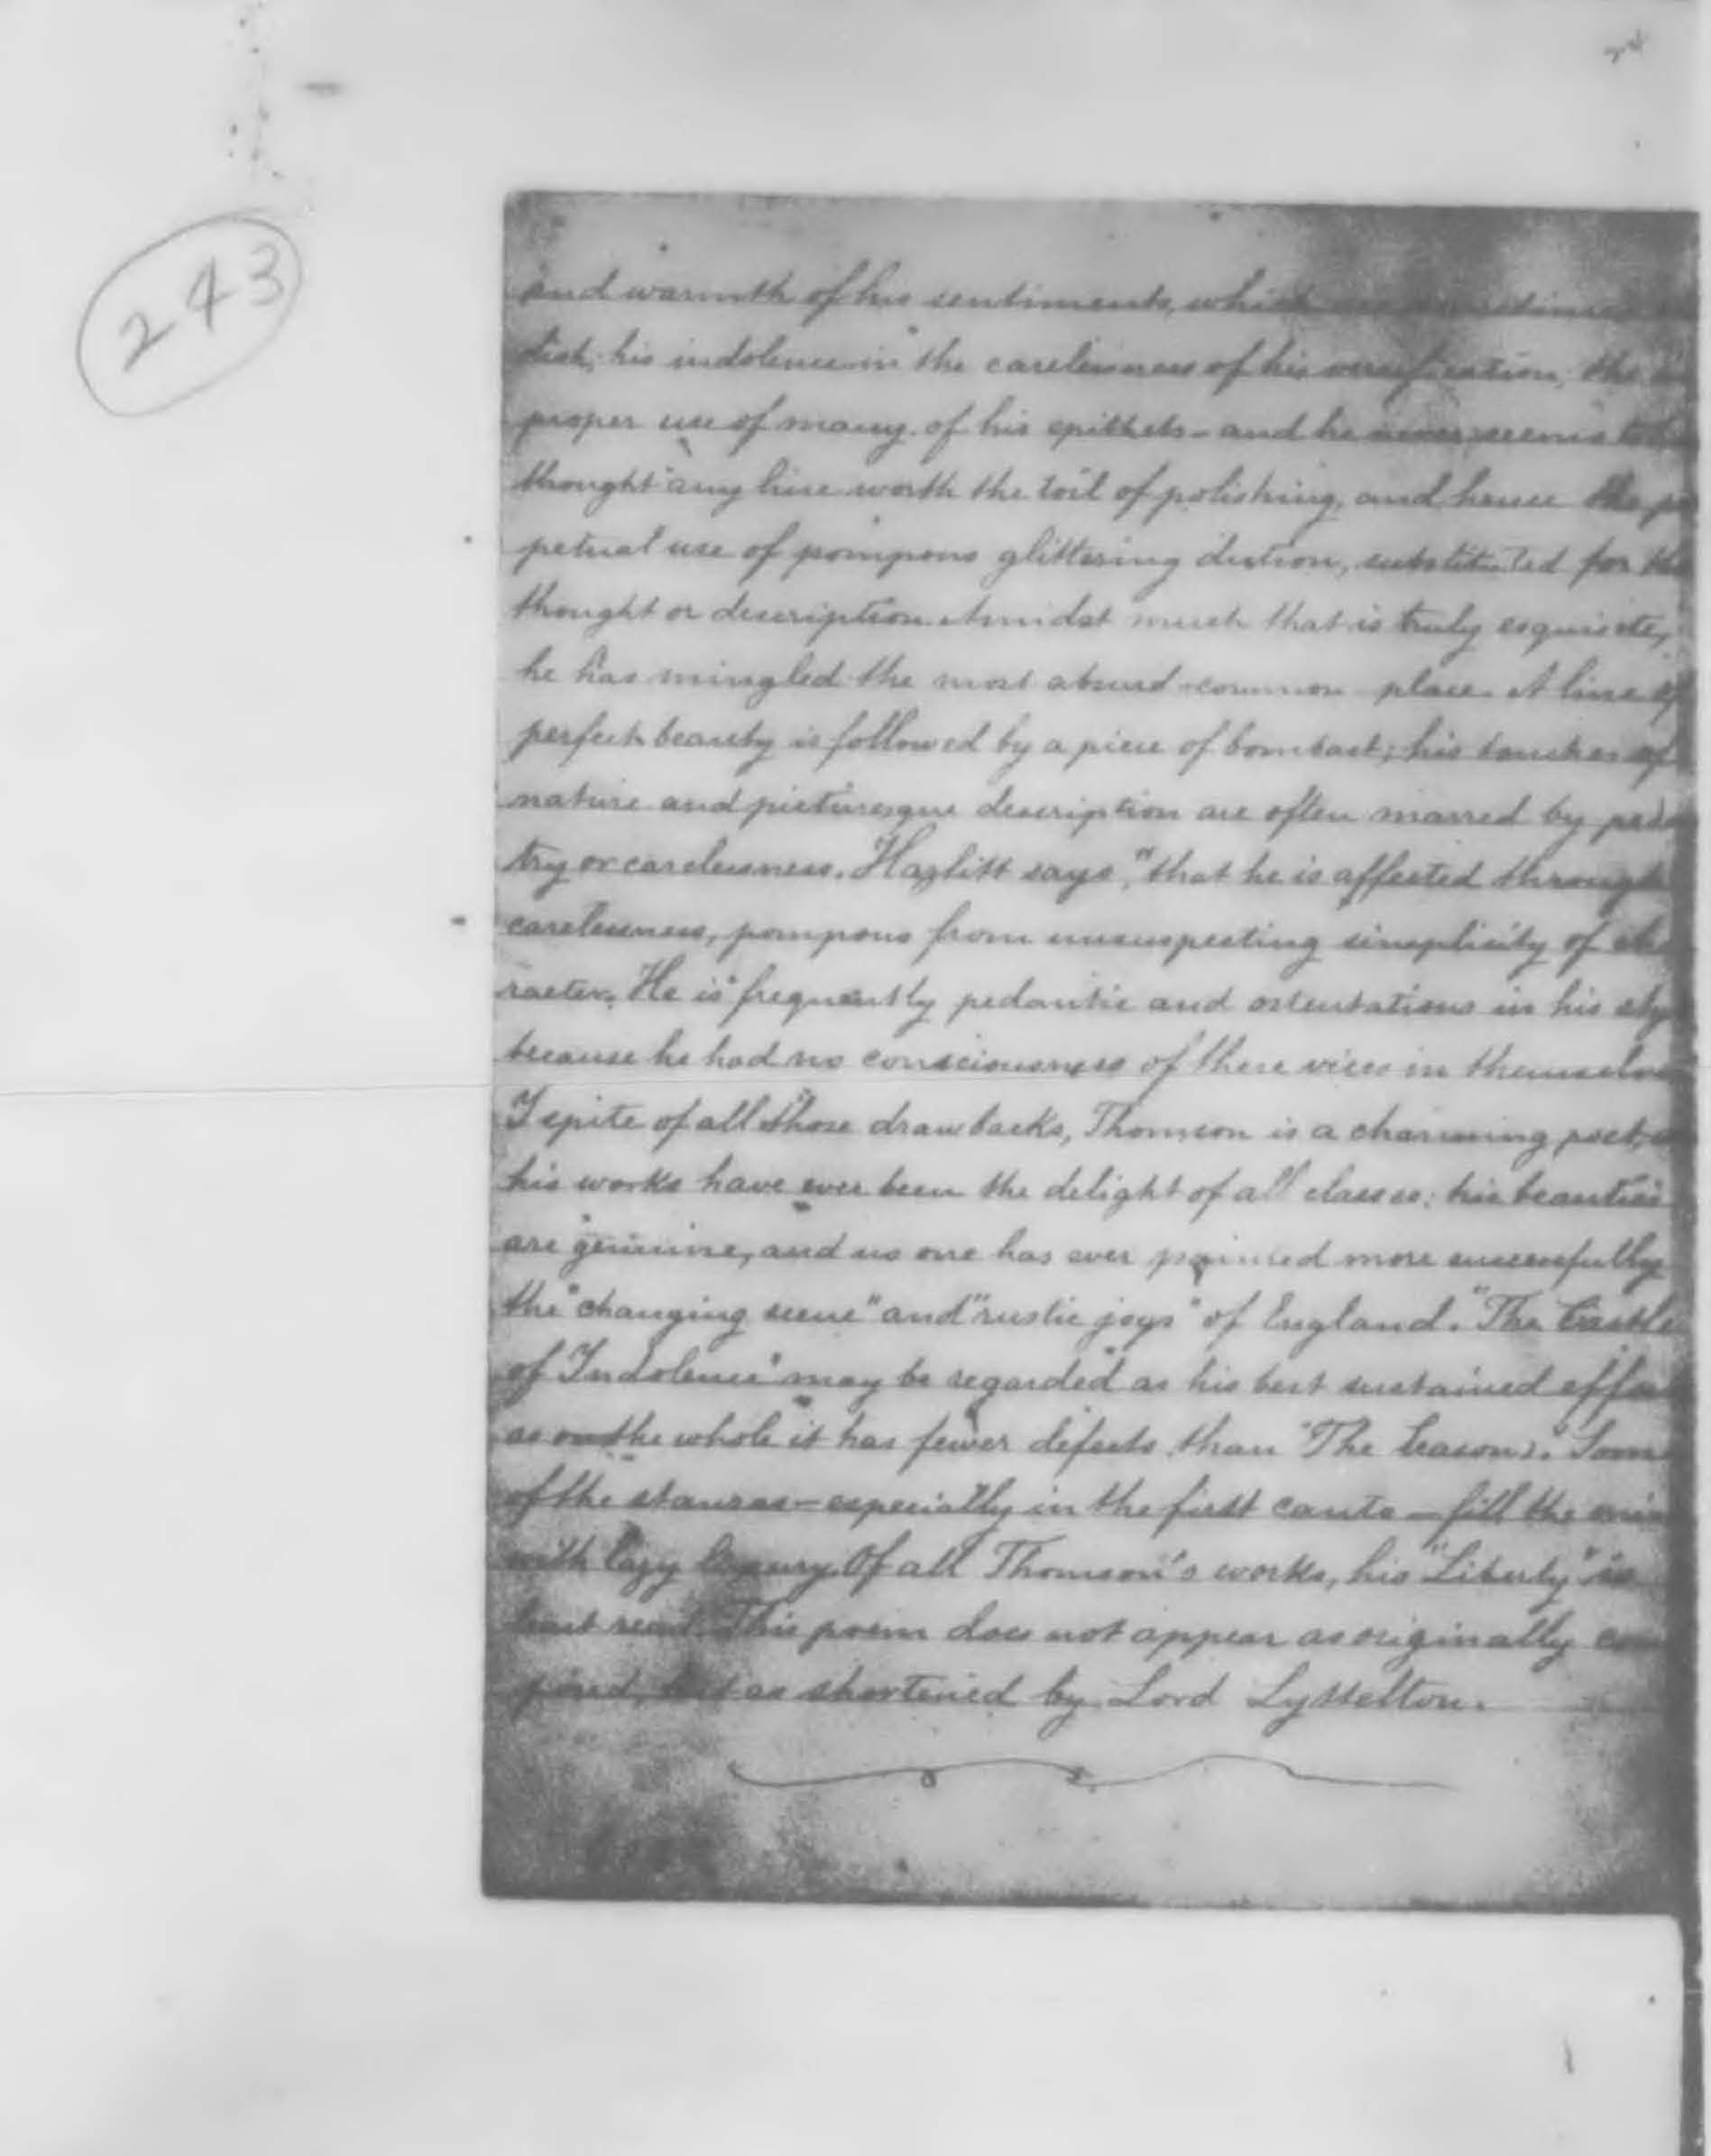 243
and warmth of his sentiments, which
his indolence in the carelessness of his versification, the
proper use of many of his epithets - and he never seems to
thought any line worth the toil of polishing, and hence the
petual use of pompous glittering diction, substituted for the
thought or description. Amidst much that is truly exquisite,
he has mingled the most absurd common place. A line of
perfect beauty is followed by a piece of bombast; his touches of
nature and picturesque description are often marred by peda
try or carelessness. Hazlitt says, "that he is affected through
carelessness, pompous from unsuspecting simplicity of cha
racter. He is frequently pedantic and ostentatious in his sty
because he had no consciousness of these vices in themselve
I spite of all those drawbacks, Thomson is a charming poet,
his works have ever been the delight of all classes: his beauties
are genuine, and no one has ever painted more successfully
the "changing scene" and "rustic joys" of England. "The Castle
of Indolence" may be regarded as his best sustained effo
as on the whole it has fewer defects than "The Seasons." Som
of the stanzas - especially in the first canto - fill the min
with lazy luxury. Of all Thomson's works, his "Liberty" is
least read. This poem does not appear as originally com
posed, but as shortened by Lord Lyttelton.